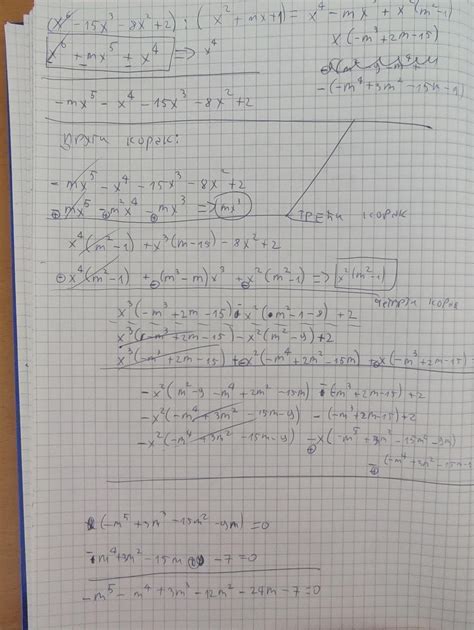 (x⁶ - 15x³ - 8x² + 2) : (x² + mx + 1) = x⁴ - mx³ + x²(m²-1)
x(-m³+2m-15)
x⁶ + mx⁵ + x⁴ => x⁴
-(-m⁴+3m²-15m-9)
-mx⁵ - x⁴ - 15x³ - 8x² + 2
други корак:
- mx⁵ - x⁴ - 15x³ - 8x² + 2
- mx⁵ - m²x⁴ - mx³ => mx³
трећи корак
x⁴(m²-1) + x³(m-15) - 8x² + 2
x⁴(m²-1) + (m³-m)x³ + x²(m²-1) => x²(m²-1)
четврти корак
x³(-m³+2m-15) - x²(m²-1-8) + 2
x³(-m³+2m-15) - x²(m²-9) + 2
x³(-m³+2m-15) + x²(-m⁴+2m²-15m) + x(-m³+2m-15)
-x²(m²-9 -m⁴+2m²-15m) -(-m³+2m-15)+2
-x²(-m⁴+3m²-15m-9) -(-m³+2m-15)+2
-x²(-m⁴+3m²-15m-9) -x(-m⁵+3m³-15m²-9m)
(-m⁴+3m²-15m-9
(-m⁵+3m³-15m²-9m)=0
-m⁴+3m²-15m -7=0
-m⁵-m⁴+3m³-12m²-24m-7=0